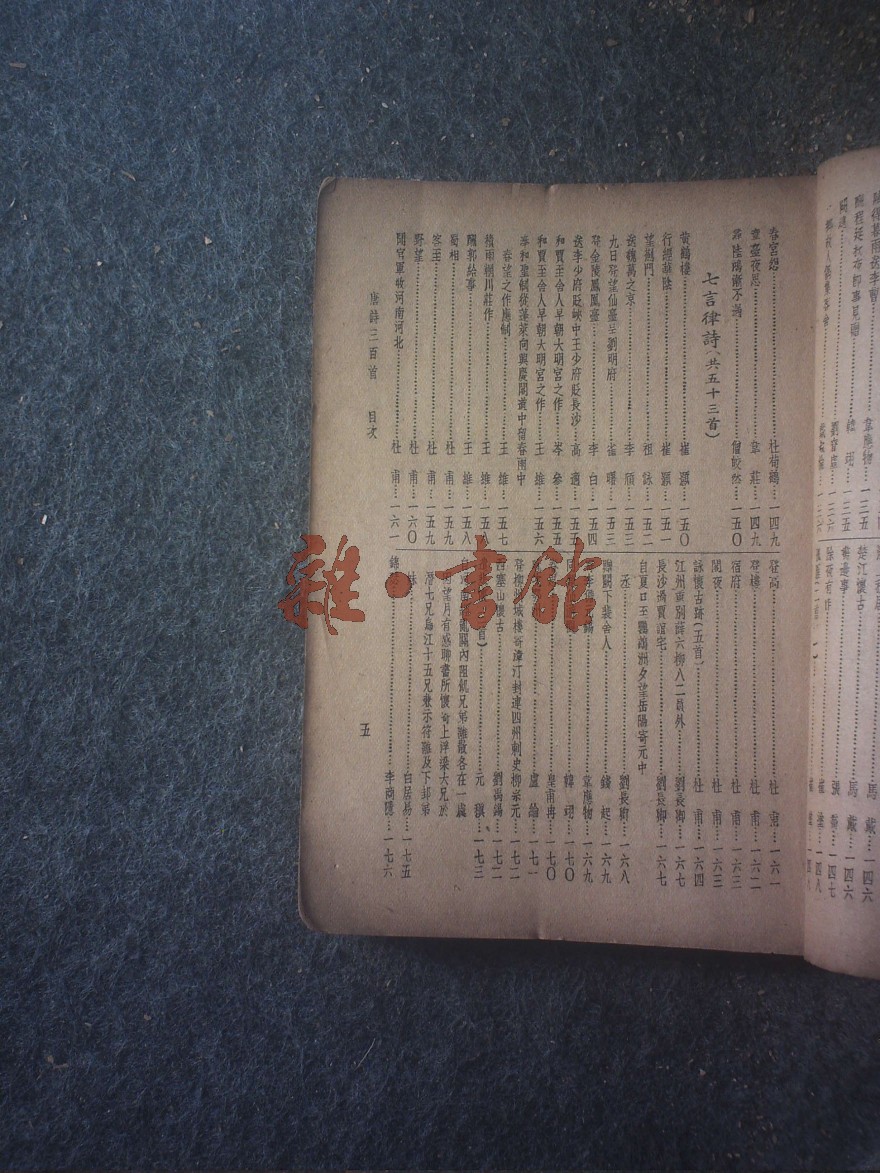 春宮怨……杜荀鶴…一四九
章臺夜思……韋 莊…一四九
尋陸鴻漸不遇……僧皎然…一五〇
七言律詩(共五十三首)
黃鶴樓……崔 顥…一五〇
行經華陰……崔 顥…一五一
望薊門……祖 詠…一五二
送魏萬之京……李 頎…一五三
九日登望仙臺呈劉明府……崔 曙…一五三
登金陵鳳凰臺……李 白…一五四
送李少府貶峽中王少府貶長沙…高 適…一五五
和賈至舍人早朝大明宮之作…岑 參…一五五
和賈至舍人早朝大明宮之作…王 維…一五六
奉和聖制從蓬萊向興慶閣道中留春雨中
春望之作應制……王 維…一五七
積雨輞川莊作……王 維…一五八
酬郭給事……王 維…一五八
蜀相……杜 甫…一五九
客至……杜 甫…一五九
野望……杜 甫…一六〇
聞官軍收河南河北……杜 甫…一六一
登高……杜 甫…一六一
登樓……杜 甫…一六二
宿府……杜 甫…一六三
閣夜……杜 甫…一六三
詠懷古跡(五首)……杜 甫…一六四
江州重別薛六柳八二員外……劉長卿…一六七
長沙過賈誼宅……劉長卿…一六七
自夏口至鸚鵡洲夕望岳陽寄元中
丞……劉長卿…一六八
贈闕下裴舍人……錢 起…一六九
李儋 錫……韋應物…一六九
韓 翃…一七〇
皇甫冉…一七〇
盧 綸…一七一
登柳州城樓寄漳汀封連四州刺史柳宗元…一七二
西塞山懷古……劉禹錫…一七二
首)……元 稹…一七三
關內阻飢兄弟離散各在一處
望月有感聊書所懷寄上浮梁大兄於
潛七兄烏江十五兄兼示符離及下邽弟
妹……白居易…一七五
錦……李商隱…一七六
唐詩三百首 目次
五
雜·書館